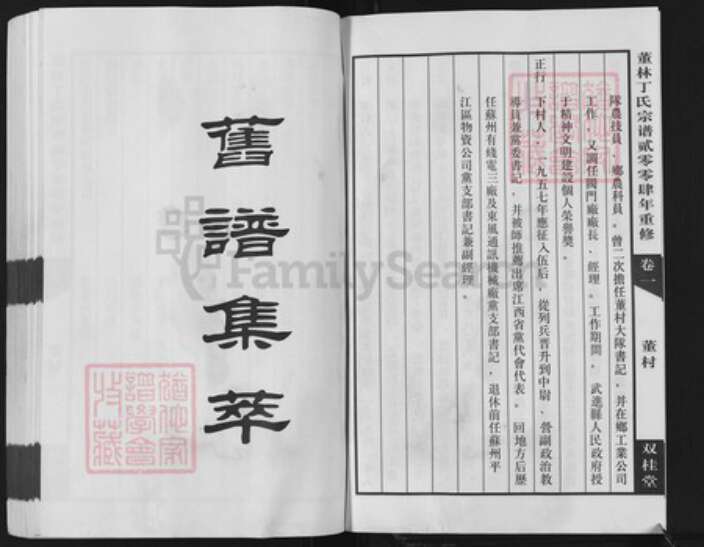 董林丁氏宗谱贰零零肆年重修
卷一
董村
双桂堂
隊農技員、鄉農科員。曾二次擔任董村大隊書記，并在鄉工業公司
工作，又調任閥門廠廠長、經理。工作期間，武進縣人民政府授
于精神文明建設個人榮譽獎。
正行
下村人，一九五七年應征入伍后，從列兵晋升到中尉、營副政治教
導員兼黨委書記，并被師推薦出席江西省黨代會代表。回地方后歷
任蘇州有綫電三廠及東風通訊機械廠黨支部書記，退休前任蘇州平
江區物資公司黨支部書記兼副經理。
舊譜集萃
FamilySearch